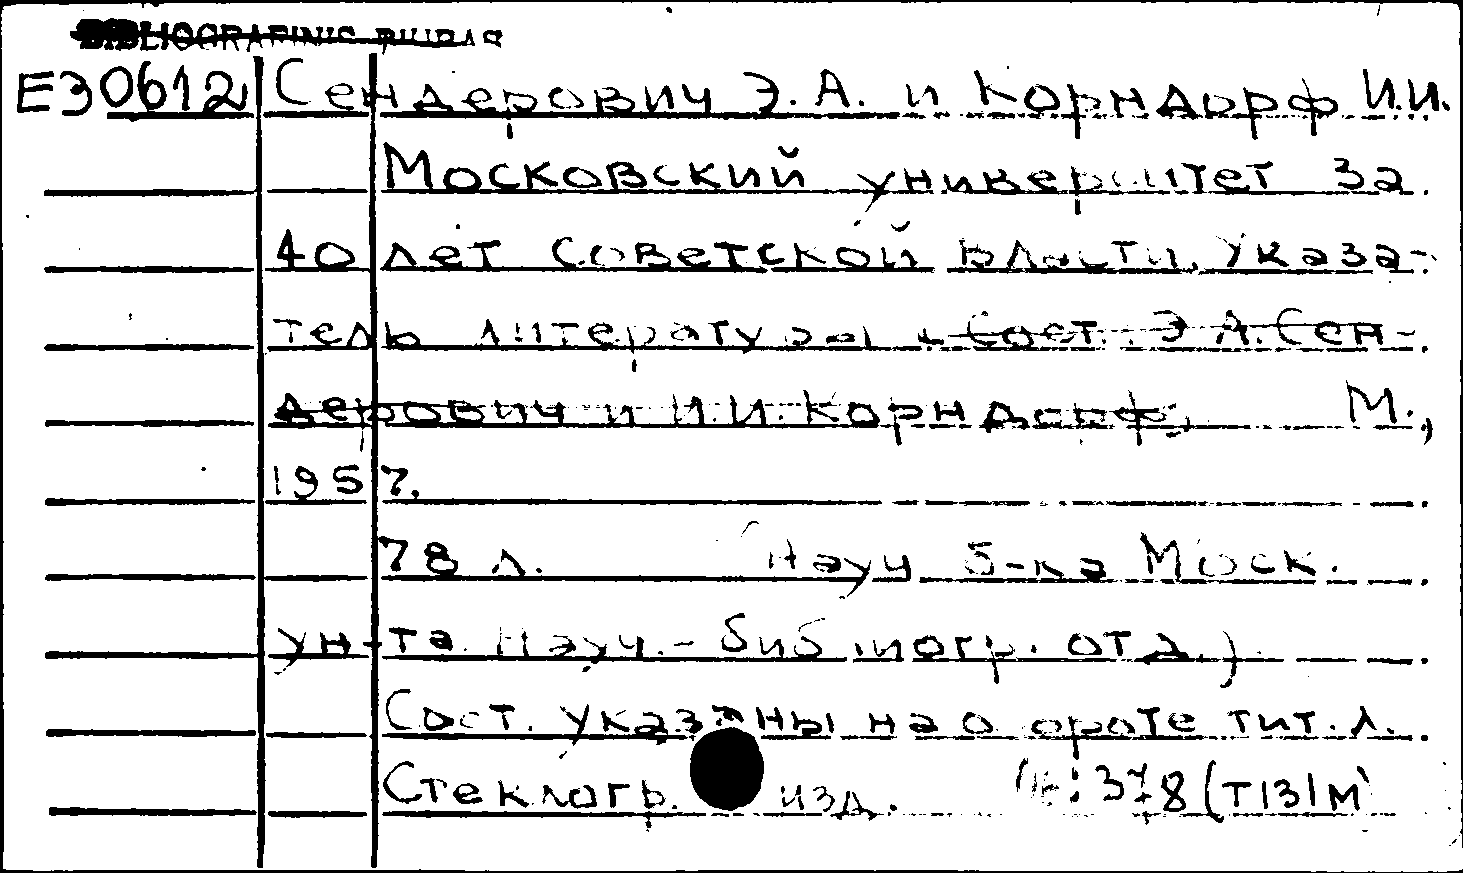 BIBLIOGRAFINIS BIURAS
E30612 Сендерович Э.А. и Корндорф И.И.
Московский университет за
40 лет Советской власти. Указа-
тель литературы. Сост. Э.А. Сен-
дерович и И.И. Корндорф. М.,
1957.
78 л. (Науч. б-ка Моск.
ун-та. Науч.-библиогр. отд.)
Сост. указаны на обороте тит. л.
Стеклогр. изд. : 378 (Т131М)